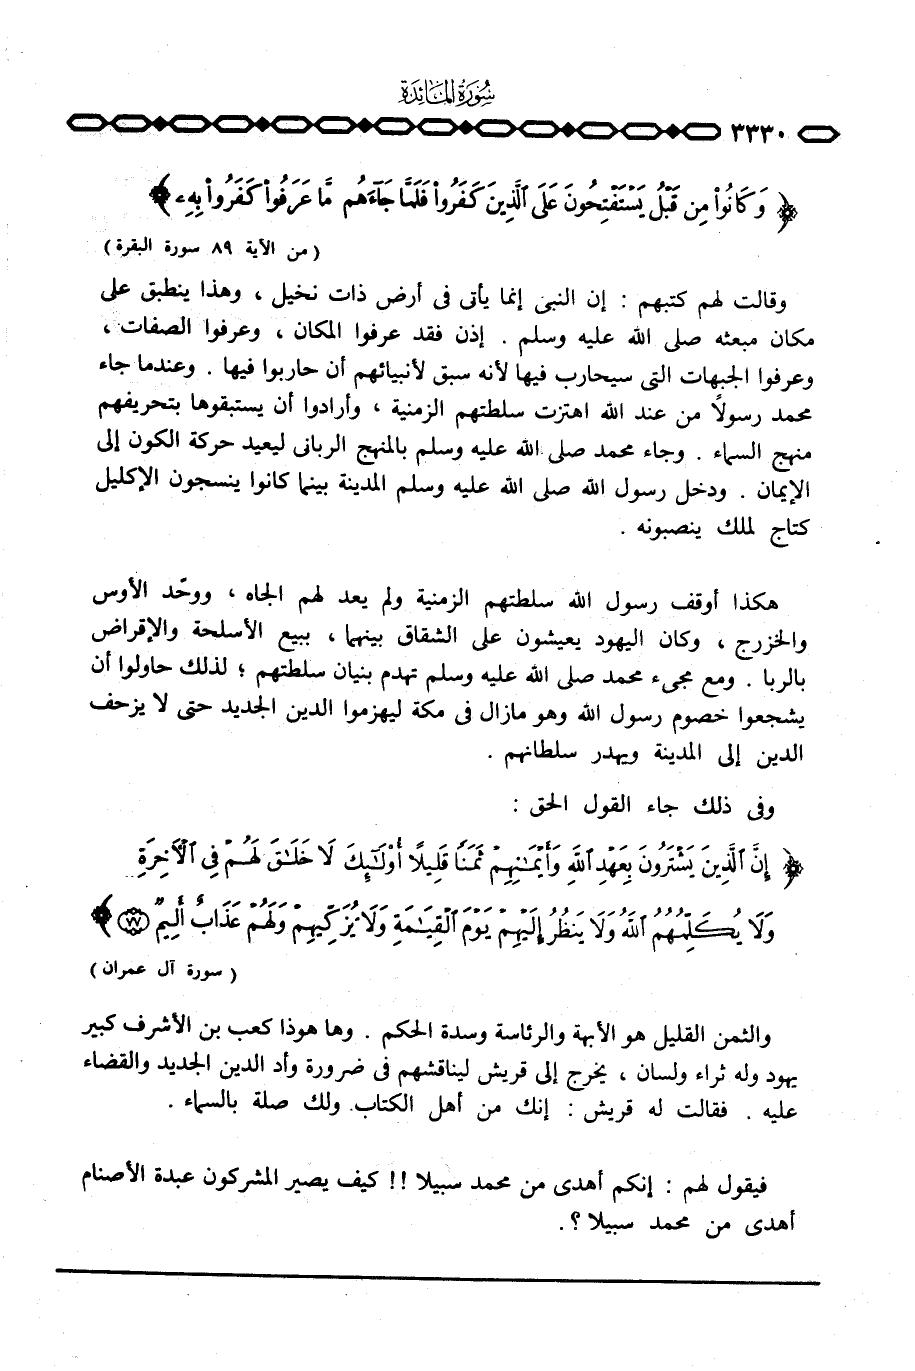 سُورَةُ المَائِدَة
٣٣٣٠
﴿ وَكَانُوا۟ مِن قَبْلُ يَسْتَفْتِحُونَ عَلَى ٱلَّذِينَ كَفَرُوا۟ فَلَمَّا جَآءَهُم مَّا عَرَفُوا۟ كَفَرُوا۟ بِهِۦ ﴾
( من الآية ٨٩ سورة البقرة )
وقالت لهم كتبهم : إن النبى إنما يأتى فى أرض ذات نخيل ، وهذا ينطبق على
مكان مبعثه صلى الله عليه وسلم . إذن فقد عرفوا المكان ، وعرفوا الصفات ،
وعرفوا الجبهات التى سيحارب فيها لأنه سبق لأنبيائهم أن حاربوا فيها . وعندما جاء
محمد رسولاً من عند الله اهتزت سلطتهم الزمنية ، وأرادوا أن يستبقوها بتحريفهم
منهج السماء . وجاء محمد صلى الله عليه وسلم بالمنهج الربانى ليعيد حركة الكون إلى
الإيمان . ودخل رسول الله صلى الله عليه وسلم المدينة بينما كانوا ينسجون الإكليل
كتاج لملك ينصبونه .
هكذا أوقف رسول الله سلطتهم الزمنية ولم يعد لهم الجاه ، ووحّد الأوس
والخزرج ، وكان اليهود يعيشون على الشقاق بينهما ، ببيع الأسلحة والإقراض
بالربا . ومع مجىء محمد صلى الله عليه وسلم تهدم بنيان سلطتهم ؛ لذلك حاولوا أن
يشجعوا خصوم رسول الله وهو مازال فى مكة ليهزموا الدين الجديد حتى لا يزحف
الدين إلى المدينة ويهدر سلطانهم .
وفى ذلك جاء القول الحق :
﴿ إِنَّ ٱلَّذِينَ يَشْتَرُونَ بِعَهْدِ ٱللَّهِ وَأَيْمَـٰنِهِمْ ثَمَنًا قَلِيلًا أُو۟لَـٰٓئِكَ لَا خَلَـٰقَ لَهُمْ فِى ٱلْـَٔاخِرَةِ
وَلَا يُكَلِّمُهُمُ ٱللَّهُ وَلَا يَنظُرُ إِلَيْهِمْ يَوْمَ ٱلْقِيَـٰمَةِ وَلَا يُزَكِّيهِمْ وَلَهُمْ عَذَابٌ أَلِيمٌ ٧٧ ﴾
( سورة آل عمران )
والثمن القليل هو الأبهة والرئاسة وسدة الحكم . وها هوذا كعب بن الأشرف كبير
يهود وله ثراء ولسان ، يخرج إلى قريش ليناقشهم فى ضرورة وأد الدين الجديد والقضاء
عليه . فقالت له قريش : إنك من أهل الكتاب. ولك صلة بالسماء .
فيقول لهم : إنكم أهدى من محمد سبيلا !! كيف يصير المشركون عبدة الأصنام
أهدى من محمد سبيلا ؟.